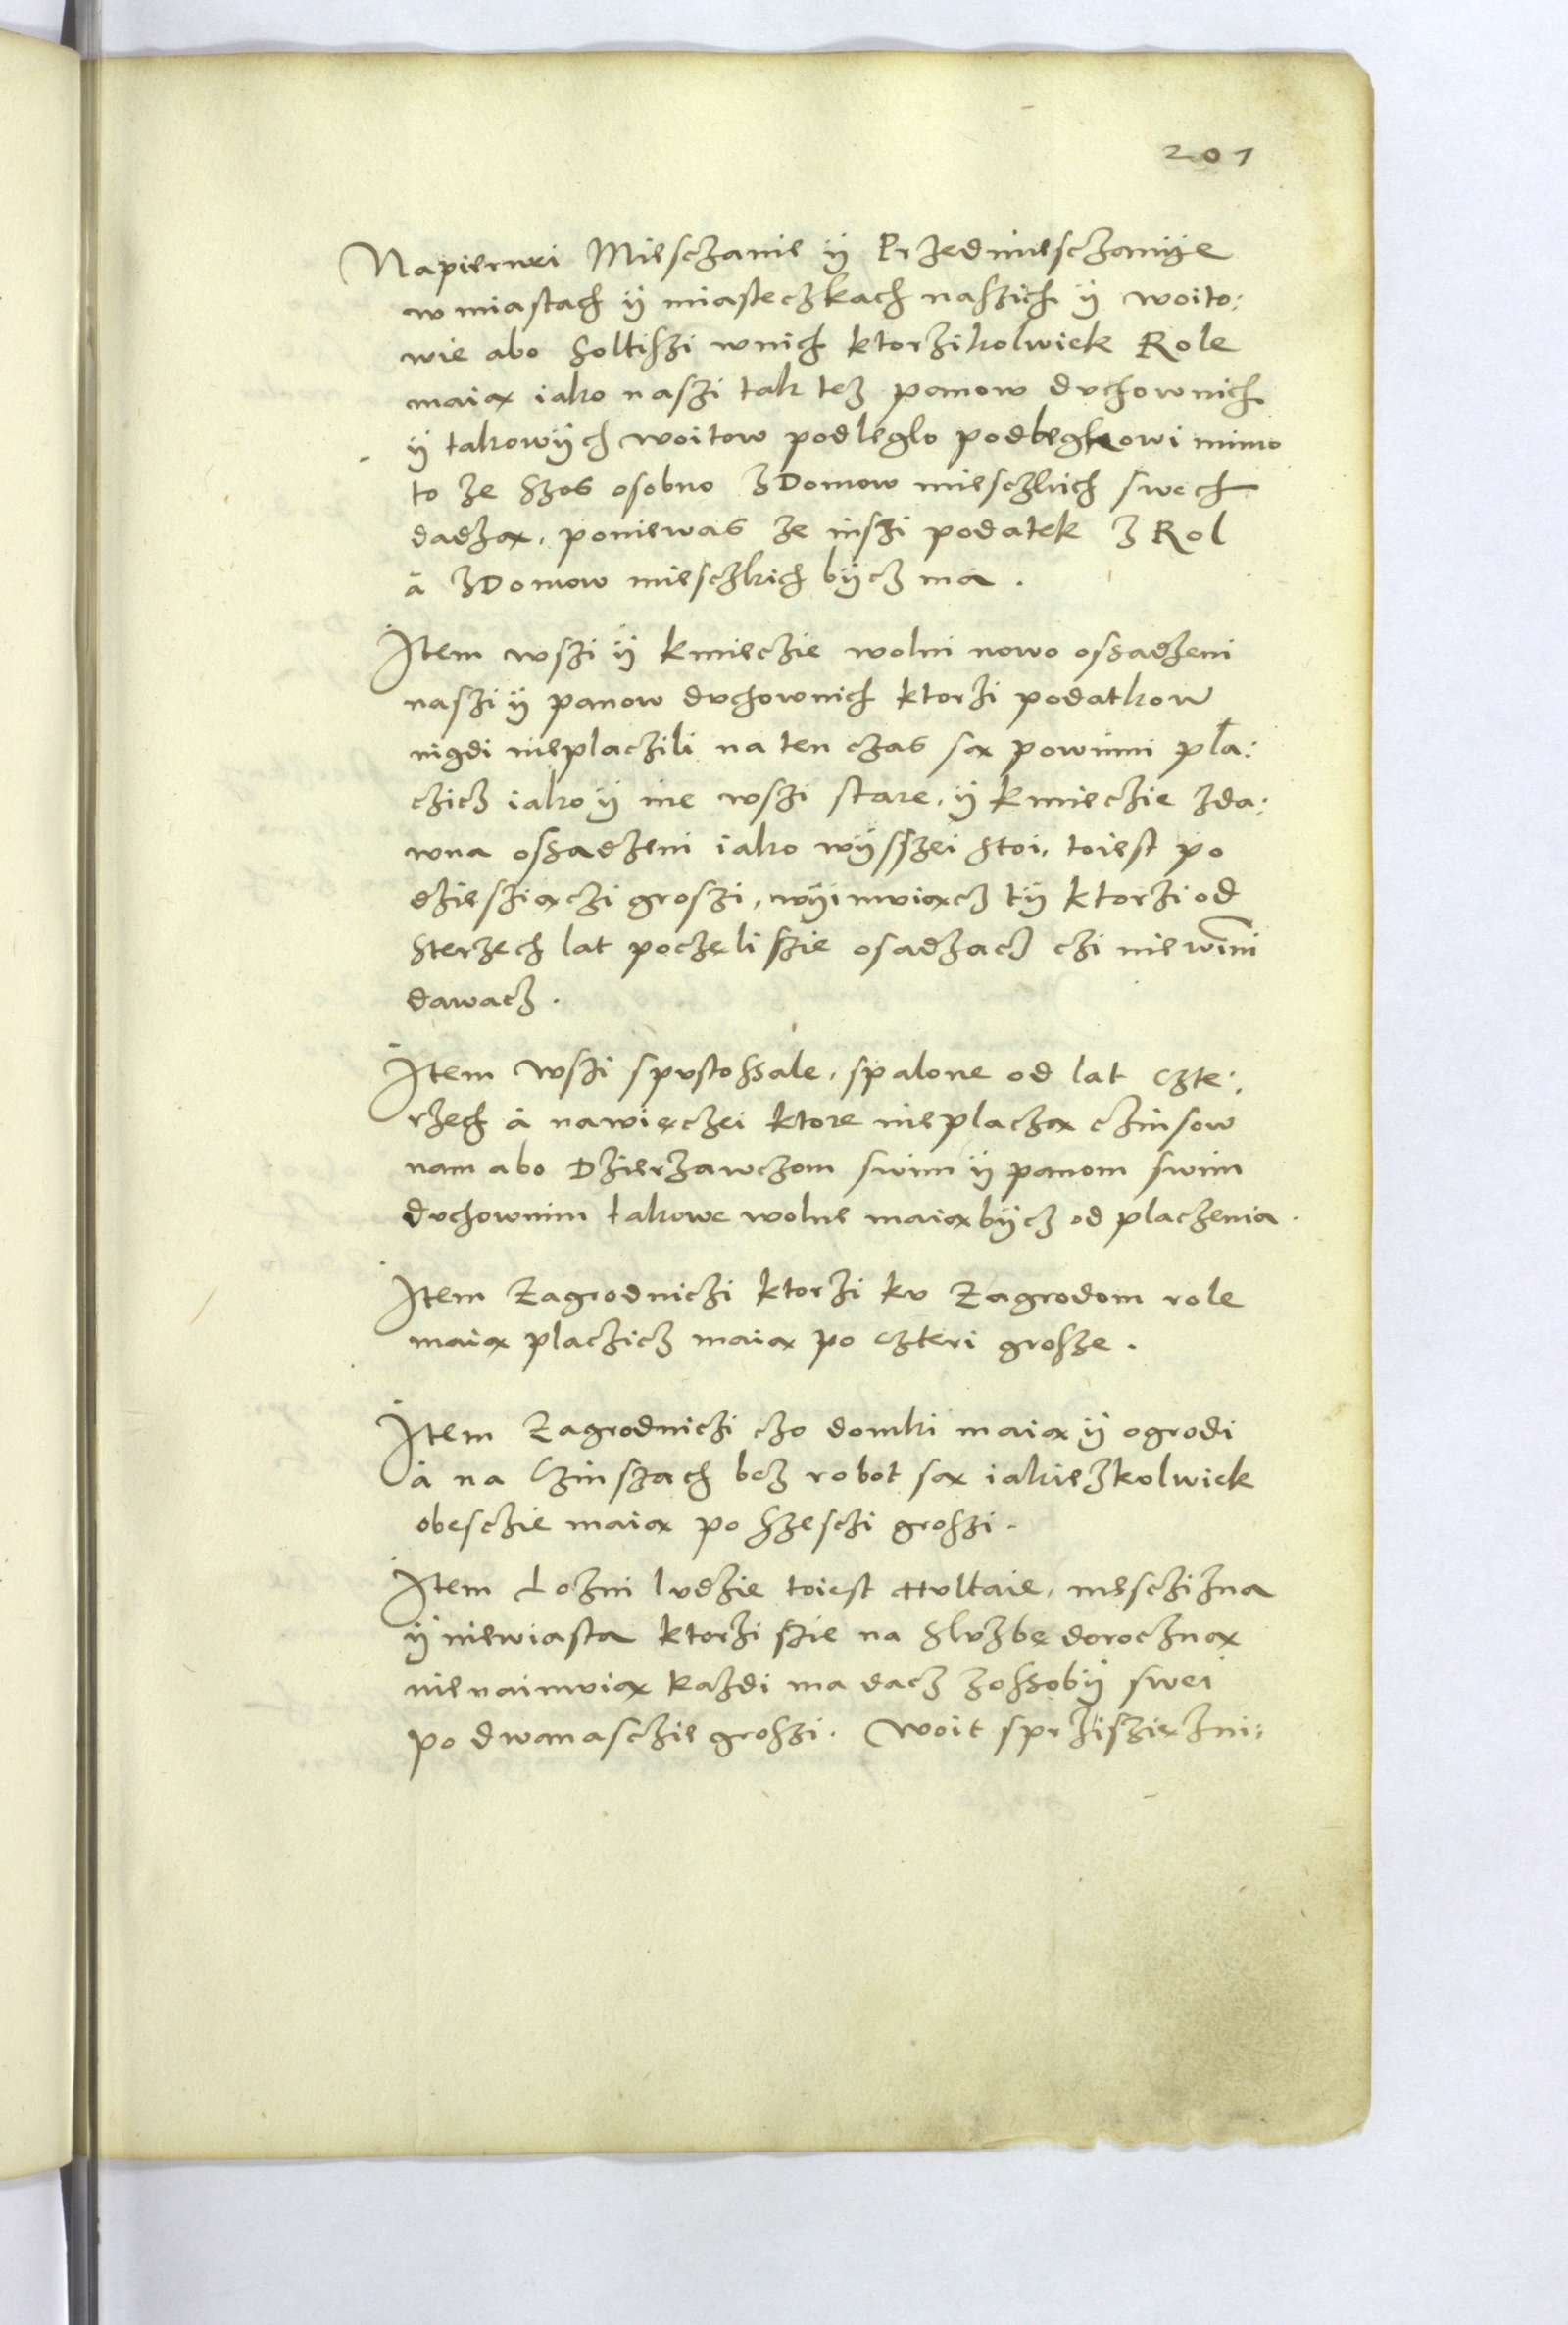 201
Napierwei Miesczanie ÿ Przedmiesczanÿe
w miastach ÿ miasteczkach naszich ÿ woito:
wie abo Soltiszi wnich ktorzikolwiek Role
maią iako naszi tak tez panow duchownich
ÿ takowÿch woitow podleglo mimo
to ze Szos osobno z Domow miesczkich swech
dadzą, poniewas ze inszi podatek z Rol
à z Domow miesczkich bÿcz ma.
Item wszi ÿ kmieczie wolni nowo ossadzeni
naszi ÿ panow duchownich ktorzi podatkow
nigdi nieplaczili na ten czas są powinni pła:
czicz iako ÿ ine wszi stare, ÿ kmieczie zda:
wna ossadzeni iako wÿsszei stoi, toiest po
dziesziączi groszi, wÿimuiącz tÿ ktorzi od
Sterzech lat poczęli szie osadzacz czi niewini
dawacz.
Item wszi spustoszale, spalone od lat czte:
rzech à nawięczei ktore nieplaczą czinsow
nam abo Dzierzawczom swim ÿ panom swim
duchownim takowe wolne maią bÿcz od placzenia.
Item Zagrodniczi ktorzi ku Zagrodom role
maią placzicz maią po czteri grosze.
Item Zagrodniczi czo domki maią ÿ ogrodi
à na Czinszach bez robot są iakiezkolwiek
obesczie maią po szesczi groszi.
Item Łozni ludzie toiest Hultaie, mesczizna
ÿ niewiasta ktorzi szie na Sluzbę doroczną
nienaimuią kazdi ma dacz zossobÿ swei
po dwanasczie groszi. Woit sprzisziężni: